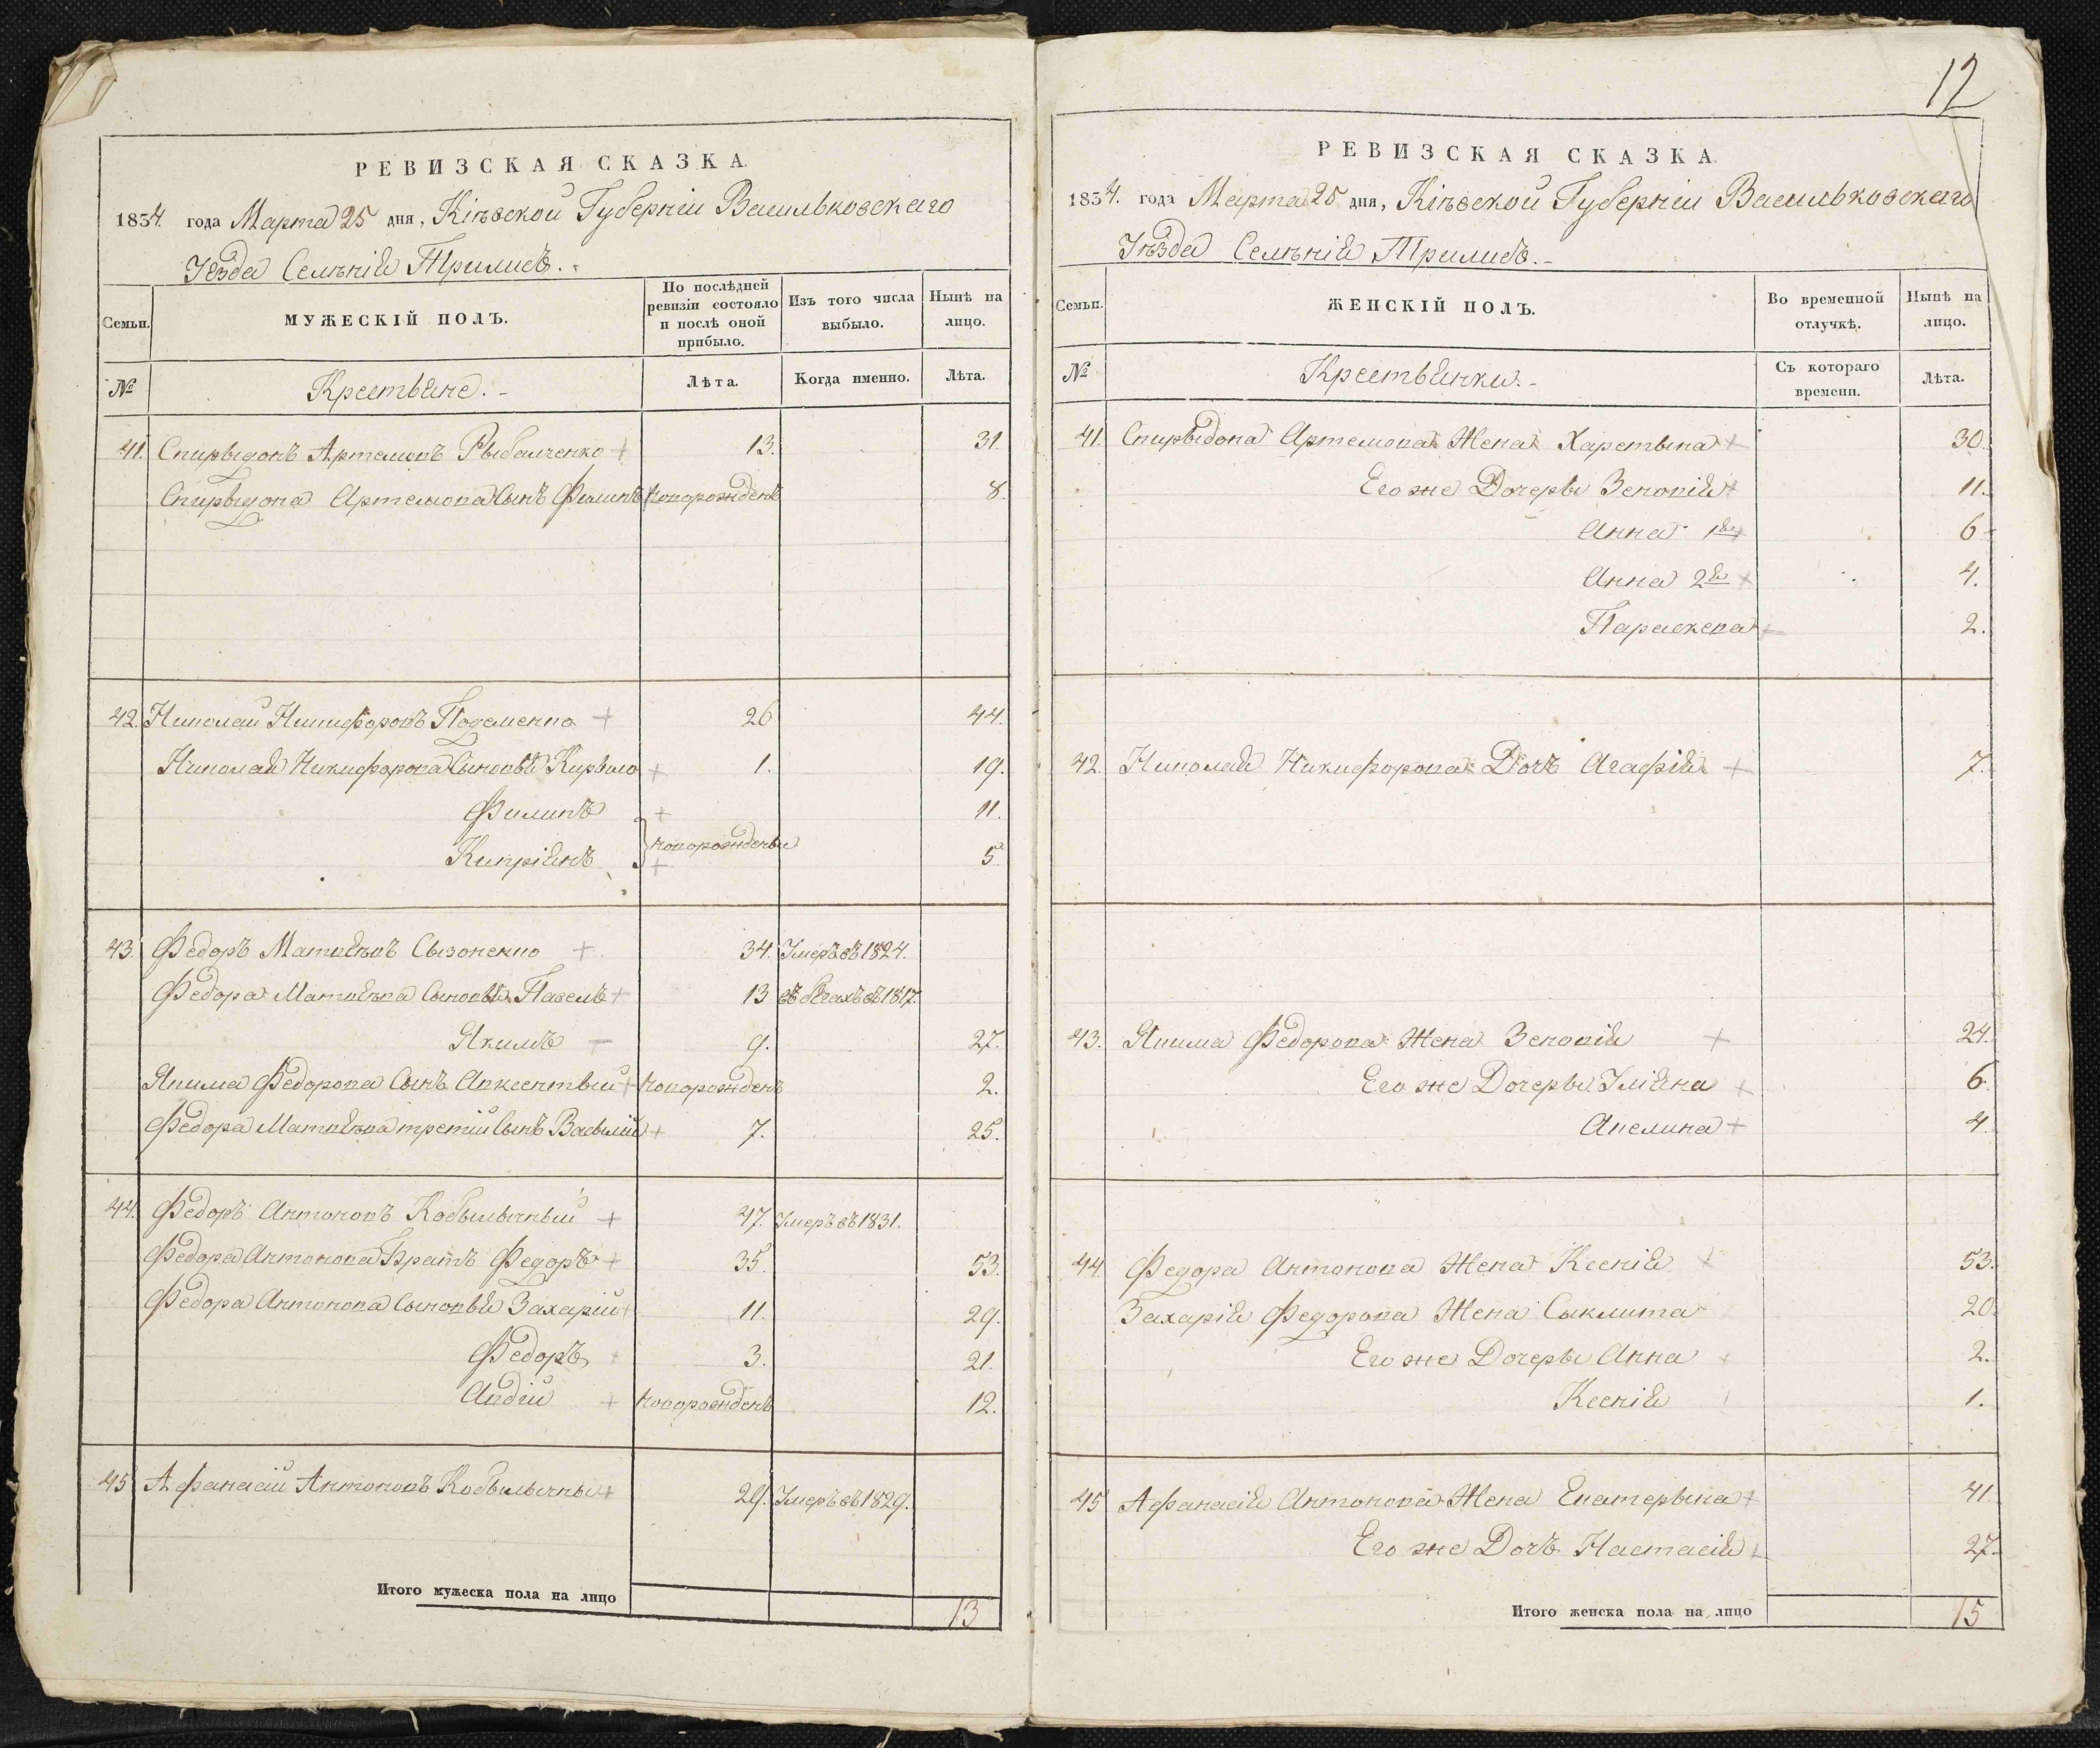 РЕВИЗСКАЯ СКАЗКА
1834. года Марта 25 дня, Кіевской Губерніи Васильковскаго
Уезда Селенія Трилисъ.
Семьи.
МУЖЕСКІЙ ПОЛЪ.
По послѣдней ревизіи состояло и послѣ оной прибыло.
Изъ того числа выбыло.
Нынѣ на лицо.
№
Крестьяне.
Лѣта.
Когда именно.
Лѣта.
41. Спирыдонъ Артемовъ Рыбалченко 13. 31.
Спирыдона Артемова Сынъ Филипъ новорожденъ 8.
42. Николай Никифоровъ Подаменко 26 44.
Николая Никифорова Сыновья Кирыло 1. 19.
Филипъ 11.
новорожденые
Кипріянъ 5.
43. Федоръ Матвѣевъ Сызоненко 34. Умеръ въ 1824.
Федора Матвѣева Сыновья Павелъ 13 въ бѣгахъ въ 1817.
Якимъ 9. 27.
Якима Федорова Сынъ Авксентый новорожденъ 2.
Федора Матвѣева третій Сынъ Васылій 7. 25.
44. Федоръ Антоновъ Кобылычный 47. Умеръ въ 1831.
Федора Антонова Братъ Федоръ 35. 53.
Федора Антонова Сыновья Захарій 11. 29.
Федоръ 3. 21.
Авдій новорожденъ 12.
45 Афанасій Антоновъ 29. Умеръ въ 1829.
Итого мужеска пола на лицо 13
12
РЕВИЗСКАЯ СКАЗКА
1834. года Марта 25 дня, Кіевской Губерніи Васильковскаго
Уѣзда Селенія Трилисъ.
Семьи.
ЖЕНСКІЙ ПОЛЪ.
Во временной отлучкѣ.
Нынѣ на лицо.
№
Крестьянки.
Съ котораго времени.
Лѣта.
41. Спирыдона Артемова Жена Харетына 30.
Его же Дочеры Зеновія 11.
Анна 1я 6
Анна 2я 4.
Параскева 2.
42. Николая Никифорова Дочъ Агафія 7.
43. Якима Федорова Жена Зеновія 24.
Его же Дочеры Уліяна 6.
Акелина 4
44. Федора Антонова Жена Ксенія 53.
Захарія Федорова Жена Сыклита 20.
Его же Дочеры Анна 2.
Ксенія 1.
45 Афанасія Антонова Жена Екатерына 41.
Его же Дочъ Настасія 27.
Итого женска пола на лицо 15